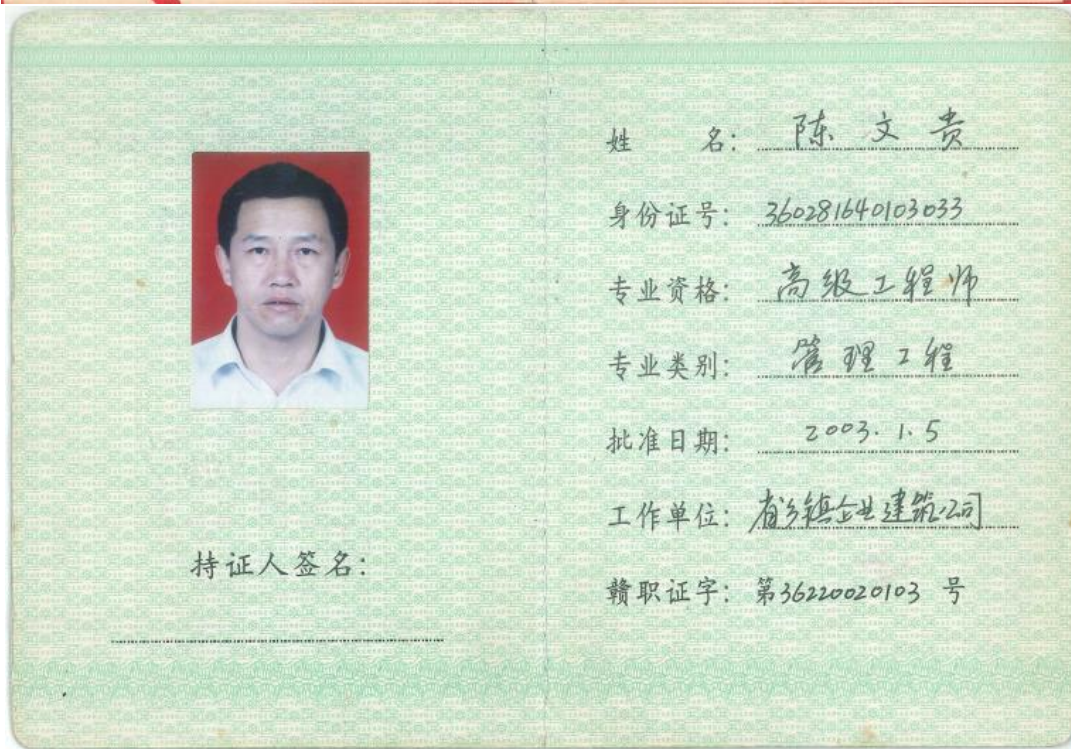 持证人签名:
姓 名: 陈文贵
身份证号: 360281640103033
专业资格: 高级工程师
专业类别: 管理工程
批准日期: 2003.1.5
工作单位: 省乡镇企业建筑公司
赣职证字: 第36220020103 号